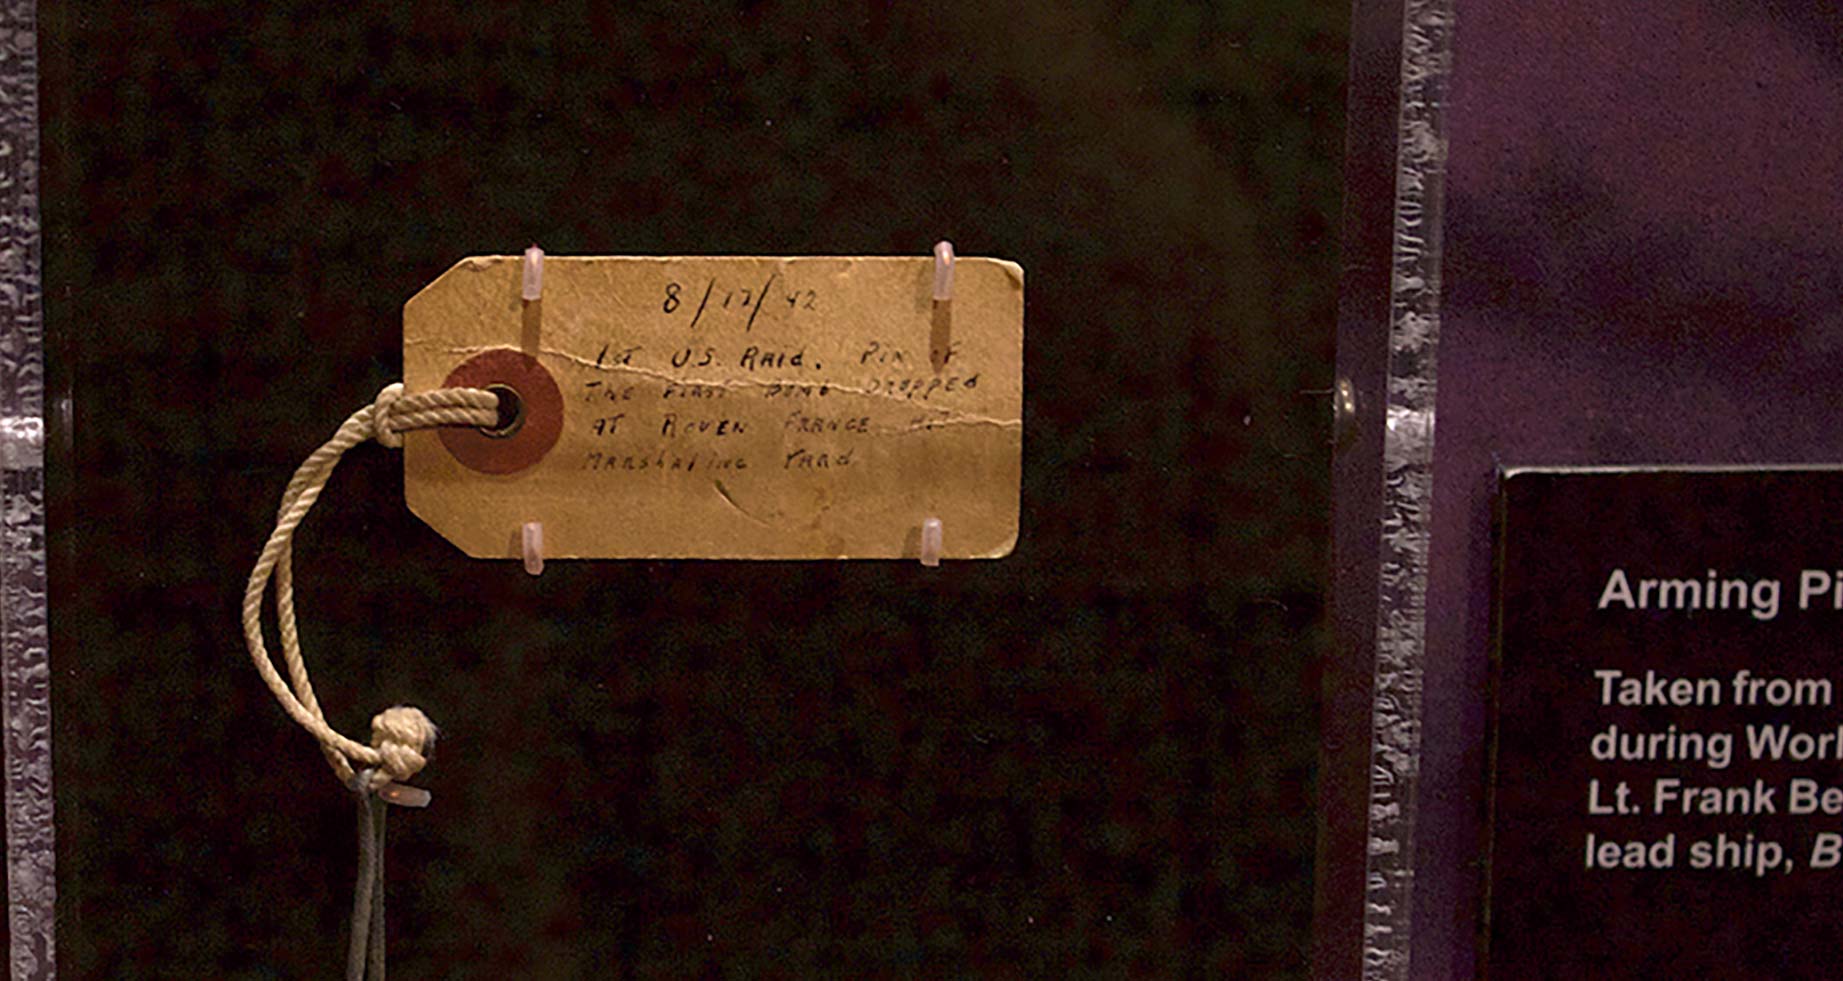 8/17/42
1st U.S. Raid. Pin of
The First Bomb Dropped
at Roven France. Hit
Marshaling Yard
Arming Pi
Taken from
during Worl
Lt. Frank Be
lead ship, B